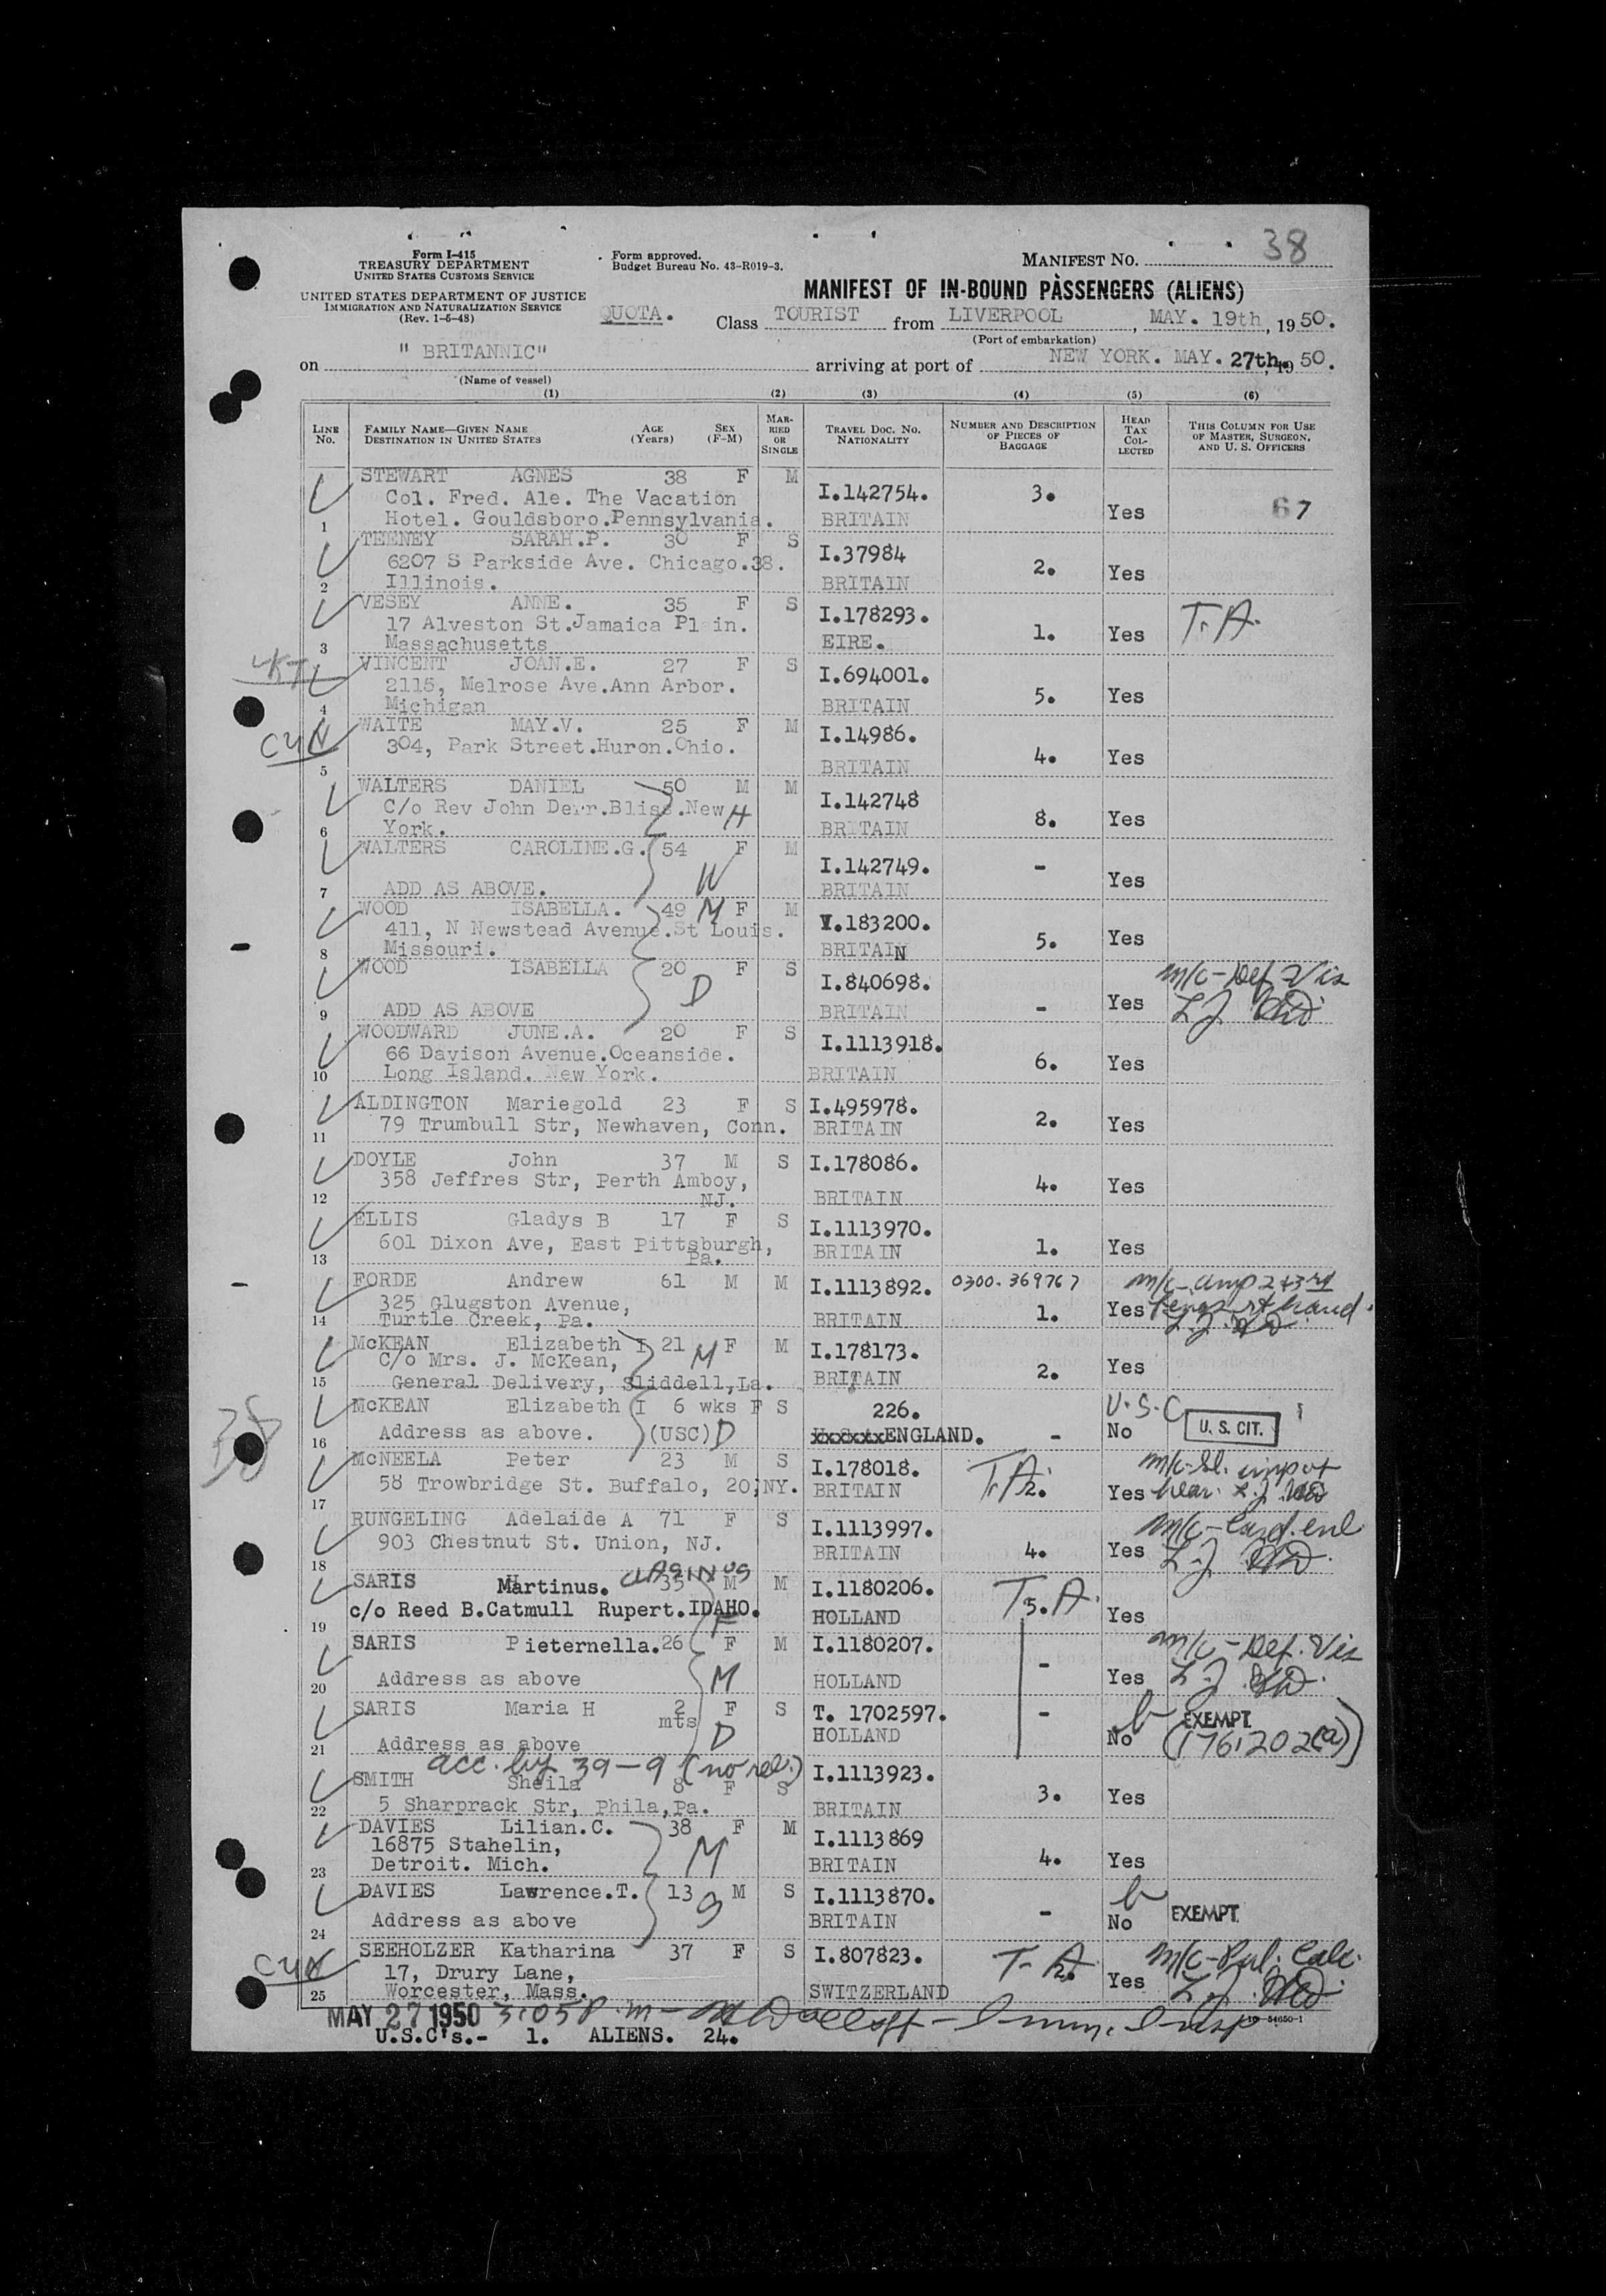 38
Form I-415
TREASURY DEPARTMENT
UNITED STATES CUSTOMS SERVICE
UNITED STATES DEPARTMENT OF JUSTICE
IMMIGRATION AND NATURALIZATION SERVICE
(Rev. 1-5-48)
Form approved.
Budget Bureau No. 43-R019-3.
MANIFEST NO.
MANIFEST OF IN-BOUND PASSENGERS (ALIENS)
QUOTA. Class TOURIST from LIVERPOOL, MAY. 19th, 1950.
(Port of embarkation)
on " BRITANNIC" arriving at port of NEW YORK. MAY. 27th, 1950.
(Name of vessel)
(1) (2) (3) (4) (5) (6)
LINE No. FAMILY NAME—GIVEN NAME DESTINATION IN UNITED STATES AGE (Years) SEX (F-M) MARRIED OR SINGLE TRAVEL DOC. NO. NATIONALITY NUMBER AND DESCRIPTION OF PIECES OF BAGGAGE HEAD TAX COLLECTED THIS COLUMN FOR USE OF MASTER, SURGEON, AND U. S. OFFICERS
STEWART AGNES 38 F M I.142754. 3.
Col. Fred. Ale. The Vacation
1 Hotel. Gouldsboro.Pennsylvania. BRITAIN Yes 67
TEENEY SARAH.P. 30 F S I.37984 2.
6207 S Parkside Ave. Chicago.38.
2 Illinois. BRITAIN Yes
VESEY ANNE. 35 F S I.178293. 1. T.A.
17 Alveston St.Jamaica Pl in.
3 Massachusetts EIRE. Yes
VINCENT JOAN.E. 27 F S I.694001. 5.
2115, Melrose Ave.Ann Arbor.
4 Michigan BRITAIN Yes
CYN WAITE MAY.V. 25 F M I.14986. 4.
304, Park Street.Huron.Ohio.
5 BRITAIN Yes
WALTERS DANIEL 50 M M I.142748 8.
C/o Rev John Derr.Bliss.New H
6 York. BRITAIN Yes
WALTERS CAROLINE.G. 54 F M I.142749. -
W
7 ADD AS ABOVE. BRITAIN Yes
WOOD ISABELLA. 49 M F M V.183200. 5.
411, N Newstead Avenue.St Louis.
8 Missouri. BRITAIN Yes
WOOD ISABELLA 20 F S I.840698. - m/c-Def Vis
D
9 ADD AS ABOVE BRITAIN Yes L.J.
WOODWARD JUNE.A. 20 F S I.1113918. 6.
66 Davison Avenue.Oceanside.
10 Long Island. New York. BRITAIN Yes
ALDINGTON Mariegold 23 F S I.495978. 2.
11 79 Trumbull Str, Newhaven, Conn. BRITAIN Yes
DOYLE John 37 M S I.178086. 4.
358 Jeffres Str, Perth Amboy,
12 NJ. BRITAIN Yes
ELLIS Gladys B 17 F S I.1113970. 1.
601 Dixon Ave, East Pittsburgh, BRITAIN Yes
13 Pa.
FORDE Andrew 61 M M I.1113892. 0300-369767 m/c-amp 2+3rd
325 Glugston Avenue, fings rt hand.
14 Turtle Creek, Pa. BRITAIN 1. Yes L.J.
McKEAN Elizabeth I 21 M F M I.178173. 2.
C/o Mrs. J. McKean,
15 General Delivery, Sliddell,La. BRITAIN Yes
McKEAN Elizabeth I 6 wks F S 226. - U.S.C
16 Address as above. (USC) D ENGLAND. No U. S. CIT.
38
McNEELA Peter 23 M S I.178018. T.A. 2. m/c-Sl. imp of
17 58 Trowbridge St. Buffalo, 20,NY. BRITAIN Yes hear. L.J.
RUNGELING Adelaide A 71 F S I.1113997. 4. m/c-Card. enl
18 903 Chestnut St. Union, NJ. BRITAIN Yes L.J.
SARIS Martinus. 35 M M I.1180206. T.A. 5.
19 c/o Reed B.Catmull Rupert.IDAHO. F HOLLAND Yes
SARIS Pieternella. 26 F M I.1180207. - m/c-Def. Vis
20 Address as above M HOLLAND Yes L.J.
SARIS Maria H 2 mts F S T. 1702597. - EXEMPT
21 Address as above D HOLLAND No (176.202(a))
acc. by 39-9 (no rel.)
SMITH Sheila 8 F S I.1113923. 3.
22 5 Sharprack Str, Phila,Pa. BRITAIN Yes
DAVIES Lilian.C. 38 F M I.1113869 4.
16875 Stahelin, M
23 Detroit. Mich. BRITAIN Yes
DAVIES Lawrence.T. 13 M S I.1113870. -
24 Address as above BRITAIN No EXEMPT.
CYN SEEHOLZER Katharina 37 F S I.807823. T.A. 2.
17, Drury Lane,
25 Worcester, Mass. SWITZERLAND Yes L.J.
MAY 27 1950 3:05 P.m - Imm. Insp
16—54650-1
U.S.C's.- 1. ALIENS. 24.